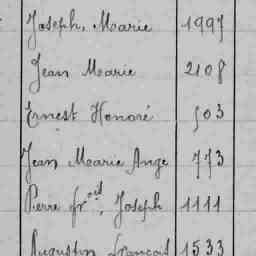 Joseph, Marie 1997
Jean Marie 2108
Ernest Honoré 503
Jean Marie Ange 773
Pierre fr.ois, Joseph 1111
Augustin François 1533